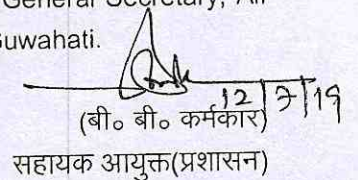 General Secretary, All
Guwahati.
12/7/19
(बी० बी० कर्मकार)
सहायक आयुक्त(प्रशासन)